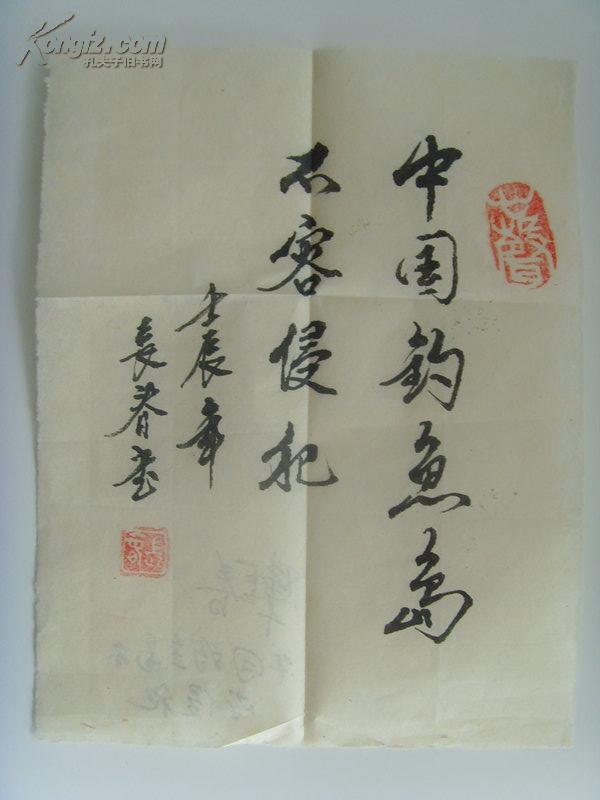 中国钓鱼岛
不容侵犯
壬辰年
长春书
Kongfz.com
孔夫子旧书网